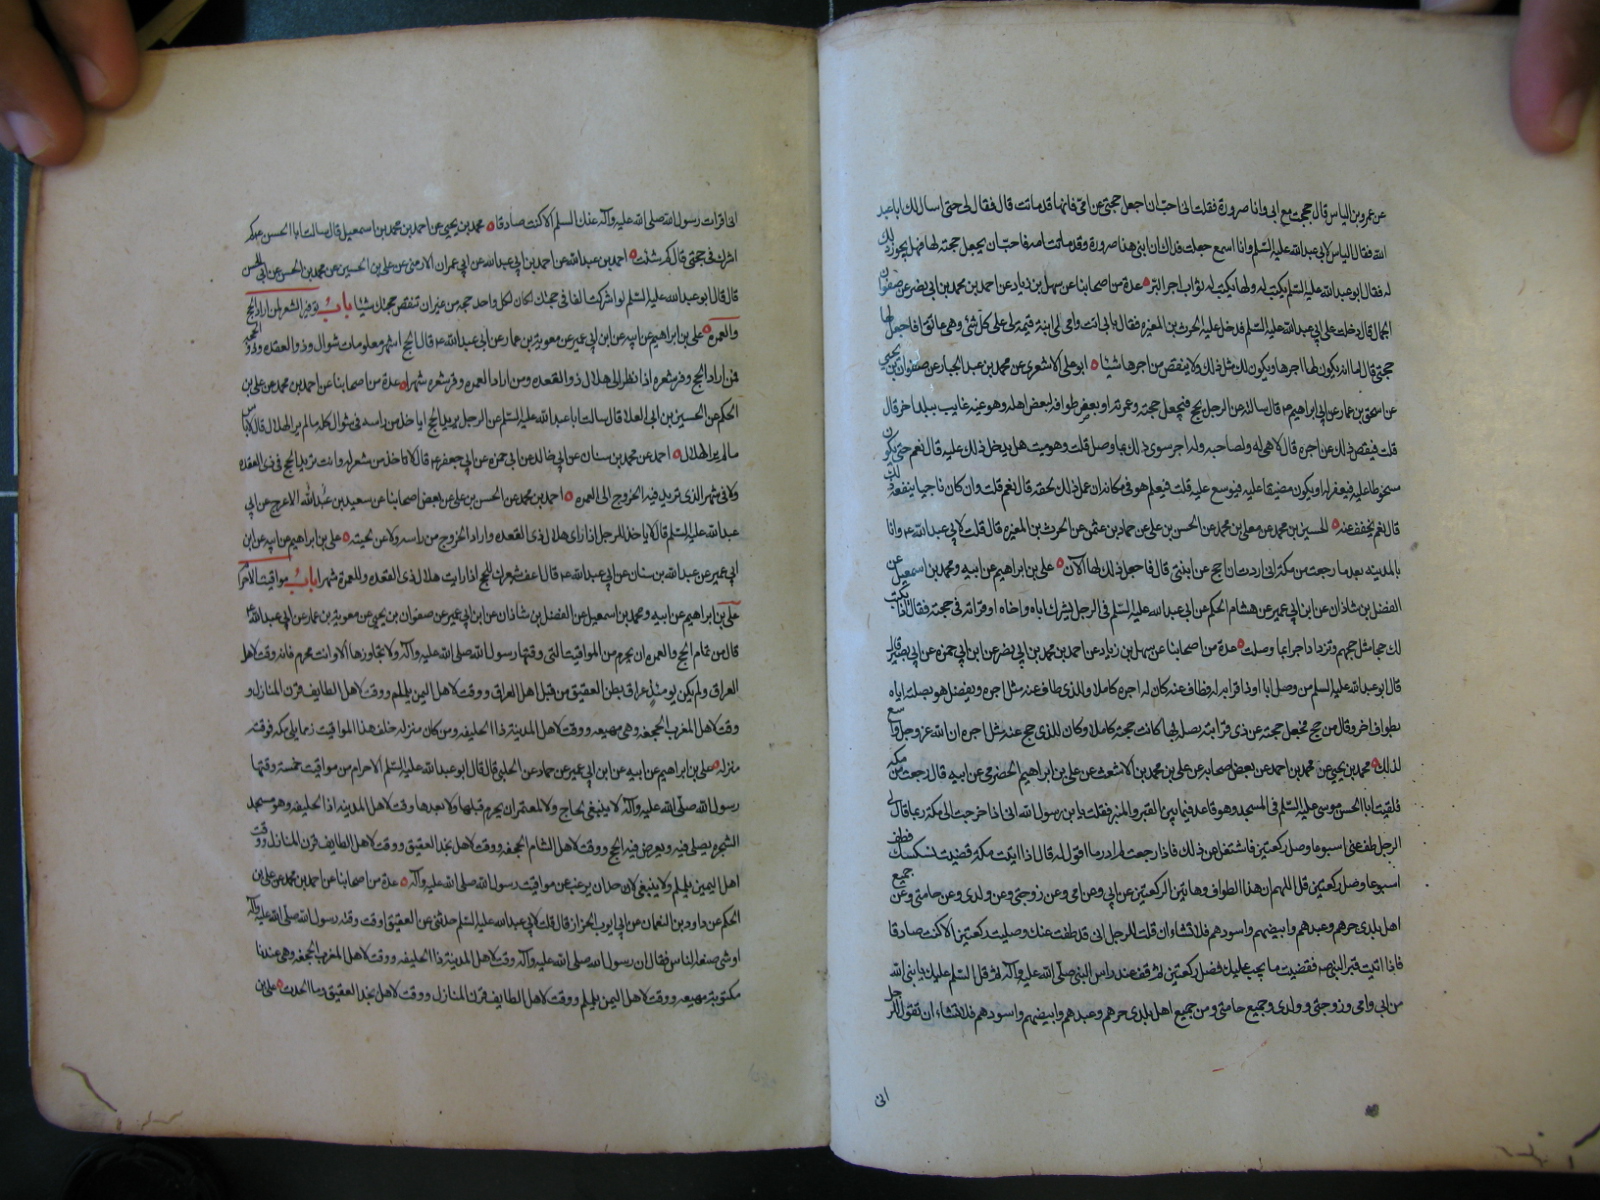 عن عمرو بن الياس قال حججت مع ابى وانا صرورة فقلت انى احب ان اجعل حجتى عن امى فانها قد ماتت قال فقال لى حتى اسال لك ابا عبد
الله فقال الياس لابى عبد الله عليه السلم وانا اسمع جعلت فداك ان ابنى هذا صرورة وقد ماتت امه فاحب ان يجعل حجته لها فهل يجوز ذلك
له فقال ابو عبد الله عليه السلم يكتب له ولها ويكتب له ثواب اجر البر عدة من اصحابنا عن سهل بن زياد عن احمد بن محمد بن ابى نصر عن صفوان
الجمال قال دخلت على ابى عبد الله عليه السلم فدخل عليه الحرث بن المغيره فقال بابى انت وامى لى ابنة قيمة لى على كل شئ وهى عاتق افاجعل لها
حجتى قال اما انه يكون لها اجرها ويكون لك مثل ذلك ولا ينقص من اجرها شيئا ابو على الاشعرى عن محمد بن عبد الجبار عن صفوان بن يحيى
عن اسحق بن عمار عن ابى ابراهيم ع قال سالته عن الرجل يحج فيجعل حجته وعمرته او بعض طوافه لبعض اهله وهو عنه غايب ببلد اخر قال
قلت فينقص ذلك من اجره قال لا هى له ولصاحبه وله اجر سوى ذلك بما وصل قلت وهو ميت هل يدخل ذلك عليه قال نعم حتى يكون
مسخوطا عليه فيغفر له او يكون مضيقا عليه فيوسع عليه قلت فيعلم هو فى مكانه ان عمل ذلك لحقه قال نعم قلت وان كان ناصبا ينفعه ذلك
قال نعم يخفف عنه الحسين بن محمد عن معلى بن محمد عن الحسن بن على عن حماد بن عثمن عن الحرث بن المغيره قال قلت لابى عبد الله ع وانا
بالمدينه بعد ما رجعت من مكة انى اردت ان احج عن ابنتى قال فاجعل ذلك لها الآن على بن ابراهيم عن ابيه ومحمد بن اسمعيل عن
الفضل بن شاذان عن ابن ابى عمير عن هشام الحكم عن ابى عبد الله عليه السلم فى الرجل يشرك اباه واخاه او قرابته فى حجته فقال اذا يكتب
لك حجا مثل حجهم وتزداد اجرا بما وصلت عدة من اصحابنا عن سهل بن زياد عن احمد بن محمد بن ابى نصر عن ابن ابى حمزه عن ابى بصير قال
قال ابو عبد الله عليه السلم من وصل ابا او ذا قرابه له فطاف عنه كان له اجره كاملا وللذى طاف عنه مثل اجره ويفضل هو بصلته اياه
بطواف اخر وقال من حج فجعل حجته عن ذى قرابته يصله بها كانت حجته كاملا وكان للذى حج عنه مثل اجره ان الله عز وجل واسع
لذلك محمد بن يحيى عن محمد بن احمد عن بعض اصحابه عن على بن محمد بن الاشعث عن على بن ابراهيم الحضرمى عن ابيه قال رجعت من مكه
فلقيت ابا الحسن موسى عليه السلم فى المسجد وهو قاعد فيما بين القبر والمنبر فقلت يا بن رسول الله انى اذا خرجت الى مكة ربما قال لى
الرجل طف عنى اسبوعا وصل ركعتين فاشتغل عن ذلك فاذا رجعت لم ادر ما اقول له قال اذا اتيت مكة فقضيت نسكك فطف
اسبوعا وصل ركعتين قل اللهم ان هذا الطواف وهاتين الركعتين عن ابى وعن امى وعن زوجتى وعن ولدى وعن حامتى وعن جميع
اهل بلدى حرهم وعبدهم وابيضهم واسودهم فلا تشاء ان قلت للرجل انى قد طفت عنك وصليت ركعتين الا كنت صادقا
فاذا اتيت قبر النبى ص فقضيت ما يجب عليك فصل ركعتين ثم قف عند راس النبى صلى الله عليه وآله ثم قل السلم عليك يا نبى الله
من ابى وامى وزوجتى وولدى وجميع حامتى ومن جميع اهل بلدى حرهم وعبدهم وابيضهم واسودهم فلا تشاء ان تقول للرجل
انى
انى اقرات رسول الله صلى الله عليه وآله عنك السلم الا كنت صادقا محمد بن يحيى عن احمد بن محمد بن اسمعيل قال سالت ابا الحسن ع كم
اشرك فى حجتى قال كم شئت احمد بن عبد الله عن احمد بن ابى عبد الله عن ابى عمران الارمنى عن على بن الحسين عن محمد بن الحسن عن ابى الحسن
قال قال ابو عبد الله عليه السلم لو اشركت الفا فى حجتك لكان لكل واحد حجه من غير ان تنقص حجتك شيئا باب توفير الشعر لمن اراد الحج
والعمرة على بن ابراهيم عن ابيه عن ابن ابى عمير عن معوية بن عمار عن ابى عبد الله ع قال الحج اشهر معلومات شوال وذو القعده وذو الحجه
فمن اراد الحج وفر شعره اذا نظر الى هلال ذو القعده ومن اراد العمره وفر شعره شهرا عدة من اصحابنا عن احمد بن محمد عن على بن
الحكم عن الحسين بن ابى العلا قال سالت ابا عبد الله عليه السلم عن الرجل يريد الحج ايا خذ من راسه فى شوال كله ما لم ير الهلال قال لا باس
ما لم ير الهلال احمد عن محمد بن سنان عن ابى خالد عن ابى حمزه عن ابى جعفر ع قال لا تاخذ من شعرك وانت تريد الحج فى ذى القعده
ولا فى شهر الذى تريد فيه الخروج الى العمره احمد بن محمد عن الحسن بن على عن بعض اصحابنا عن سعيد بن عبد الله الاعرج عن ابى
عبد الله عليه السلم قال لا ياخذ الرجل اذا راى هلال ذى القعده واراد الخروج من راسه ولا من لحيته على بن ابراهيم عن ابيه عن ابن
ابى عمير عن عبد الله بن سنان عن ابى عبد الله ع قال اعف شعرك للحج اذا رايت هلال ذى القعده وللعمرة شهرا باب مواقيت الاحرام
على بن ابراهيم عن ابيه ومحمد بن اسمعيل عن الفضل بن شاذان عن ابن ابى عمير عن صفوان بن يحيى عن معوية بن عمار عن ابى عبد الله ع
قال من تمام الحج والعمره ان يحرم من المواقيت التى وقتها رسول الله صلى الله عليه وآله ولا تجاوزها الا وانت محرم فانه وقت لاهل
العراق ولم يكن يومئذ عراق بطن العقيق من قبل اهل العراق ووقت لاهل اليمن يلملم ووقت لاهل الطايف قرن المنازل و
وقت لاهل المغرب الجحفه وهى مهيعه ووقت لاهل المدينة ذا الحليفه ومن كان منزله خلف هذا المواقيت مما يلى مكه فوقته
منزله على بن ابراهيم عن ابيه عن ابن ابى عمير عن حماد عن الحلبى قال قال ابو عبد الله عليه السلم الاحرام من مواقيت خمسة وقتها
رسول الله صلى الله عليه وآله لا ينبغى لحاج ولا لمعتمر ان يحرم قبلها ولا بعدها وقت لاهل المدينه اذا الحليفه وهو مسجد
الشجره يصلى فيه ويعرض فيه الحج ووقت لاهل الشام الجحفه ووقت لاهل نجد العقيق ووقت لاهل الطايف قرن المنازل ووقت
اهل اليمن يلملم ولا ينبغى لاحد ان يرغب عن مواقيت رسول الله صلى الله عليه وآله عدة من اصحابنا عن احمد بن محمد عن على بن
الحكم عن داود بن النعمان عن ابى ايوب الخزاز قال قلت لابى عبد الله عليه السلم حدثنى عن العقيق اوقت وقته رسول الله صلى الله عليه وآله
او شى صنعه الناس فقال ان رسول الله صلى الله عليه وآله وقت لاهل المدينة ذا الحليفه ووقت لاهل المغرب الجحفه وهى عندنا
مكتوبة مهيعه ووقت لاهل اليمن يلملم ووقت لاهل الطايف قرن المنازل ووقت لاهل نجد العقيق وما انجدت على بن